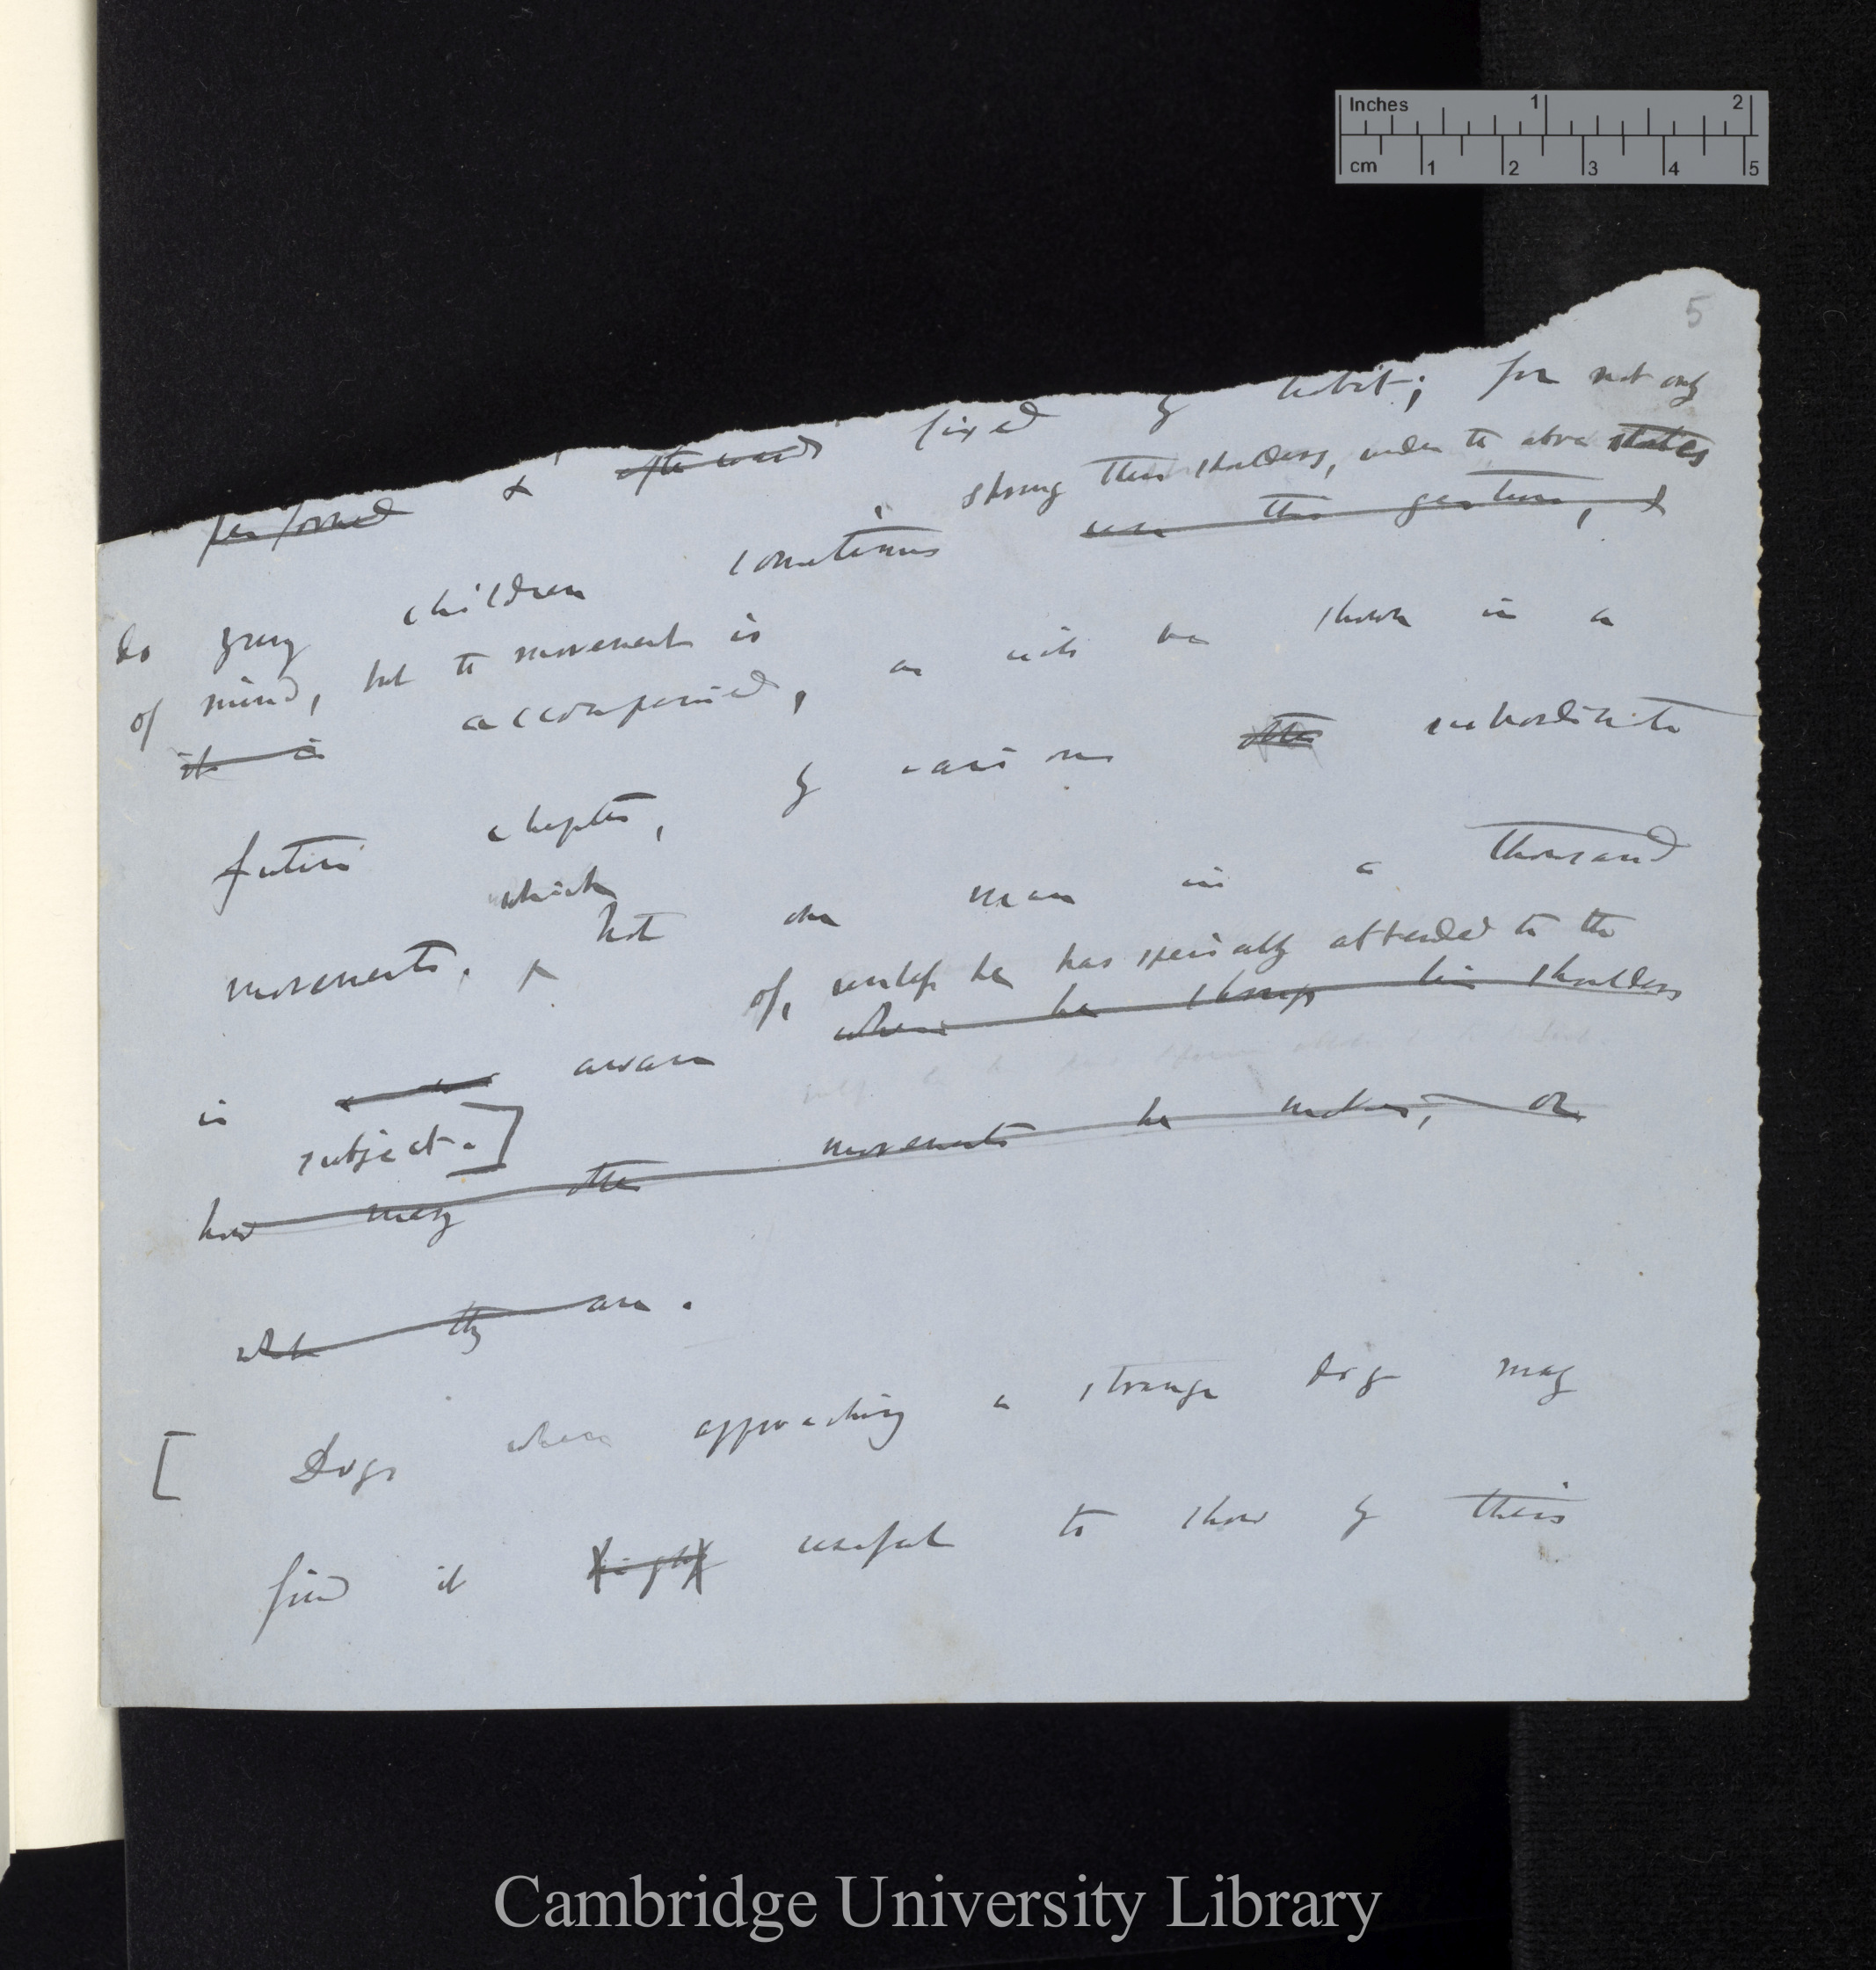 Inches 1 2
cm 1 2 3 4 5
5
performed & afterwards fixed by habit; for not only
shrug their shoulders, under the above states
do young children sometimes use this gesture, &
of mind, but the movement is
it is accompanied, as will be shown in a
future chapter, by various other subordinate
movements, which not one man in a thousand
of, unless he has specially attended to the
is aware when he shrugs his shoulders
subject.]
how many other movements he makes, or
what they are.
[ Dogs when approaching a strange dog may
find it useful to show by their
Cambridge University Library